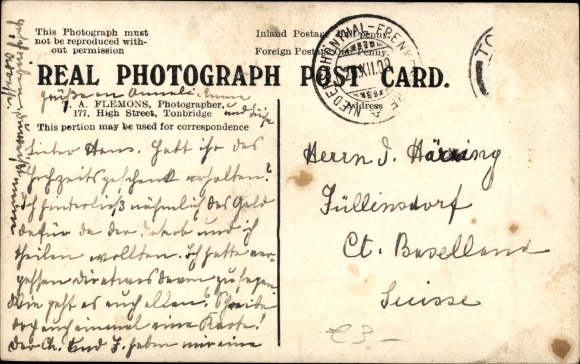 This Photograph must
not be reproduced with-
out permission
Inland Postage Half Penny.
Foreign Postage One Penny.
REAL PHOTOGRAPH POST CARD.
J. A. FLEMONS, Photographer,
177, High Street, Tonbridge
This portion may be used for correspondence
Address
Grüße an Anneli, Emma
und
Lieber Hans. Hatt ihr das
Hochzeitsgeschenk erhalten?
Ich hinterließ nähmlich das Geld
dafür da der Jakob und ich
theilen wollten. Ich hatte ver-
gessen dir etwas davon zu sagen
Wie geht es euch allen? Schreibe
doch auch einmal eine Karte!
der Ch. und J. haben mir eine
Herrn J. Häring
Füllinsdorf
Ct. Baselland
Suisse
€3.-
XII.09
TO